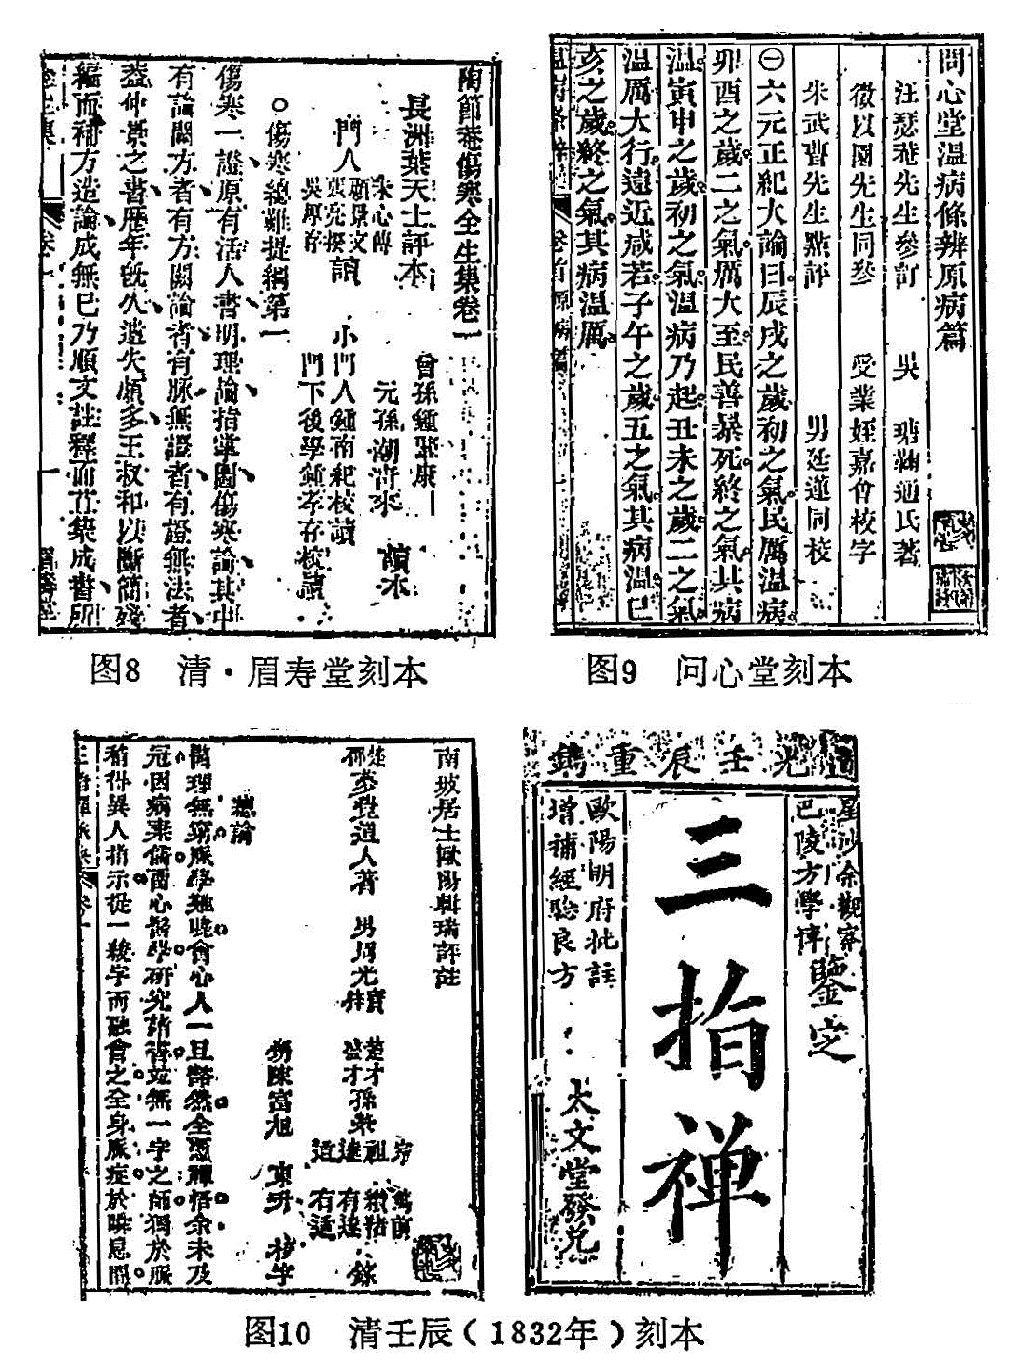 陶節菴傷寒全生集卷一
長洲葉天士評本
曾孫鍾
元孫
門人
顧景文
吳厚存
小門人鍾南紀校讀
門下後學鍾孝存校讀
○傷寒總難提綱第一
傷寒一證原有活人書明理論指掌圖傷寒論其中
有論闕方者有方闕論者有脉無證者有證無法者
蓋仲景之書歷年旣久遺失頗多王叔和以斷簡殘
編而補方造論成無已乃順文註釋而

集成書所
图8 清·眉寿堂刻本
問心堂溫病條辨原病篇
汪瑟菴先生參訂 吳 瑭鞠通氏著
徵以園先生同參 受業姪嘉會校字
朱武曹先生點評 男廷蓮同校
㊀六元正紀大論曰辰戌之歲初之氣民厲溫病
卯酉之歲二之氣厲大至民善暴死終之氣其病
溫寅申之歲初之氣溫病乃起丑未之歲二之氣
溫厲大行遠近咸若子午之歲五之氣其病溫巳
亥之歲終之氣其病溫厲
图9 问心堂刻本
南坡居士歐陽輯瑞評註
夢覺道人著
總論
醫理無窮脉學難曉會心人一旦豁然全憑禪悟余未及
冠因病棄儒酉心醫學研究諸書竝無一字之師獨於脈
稍得異人指示從一緩字而融會之全身脈症於瞬息間
道光壬辰重鐫
星沙余觀察
巴陵方學博
鑒定
三指禅
歐陽明府批註
增補經驗良方
太文堂發兌
图10 清壬辰(1832年)刻本